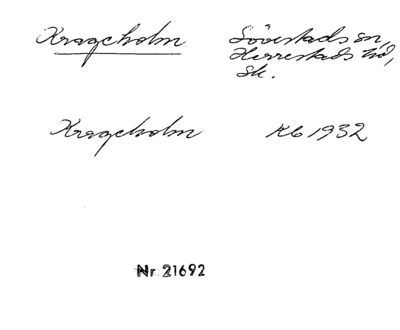 Krageholm Sövestads sn,
Herrestads hd,
Sk.
Krageholm Kb 1932
Nr 21692